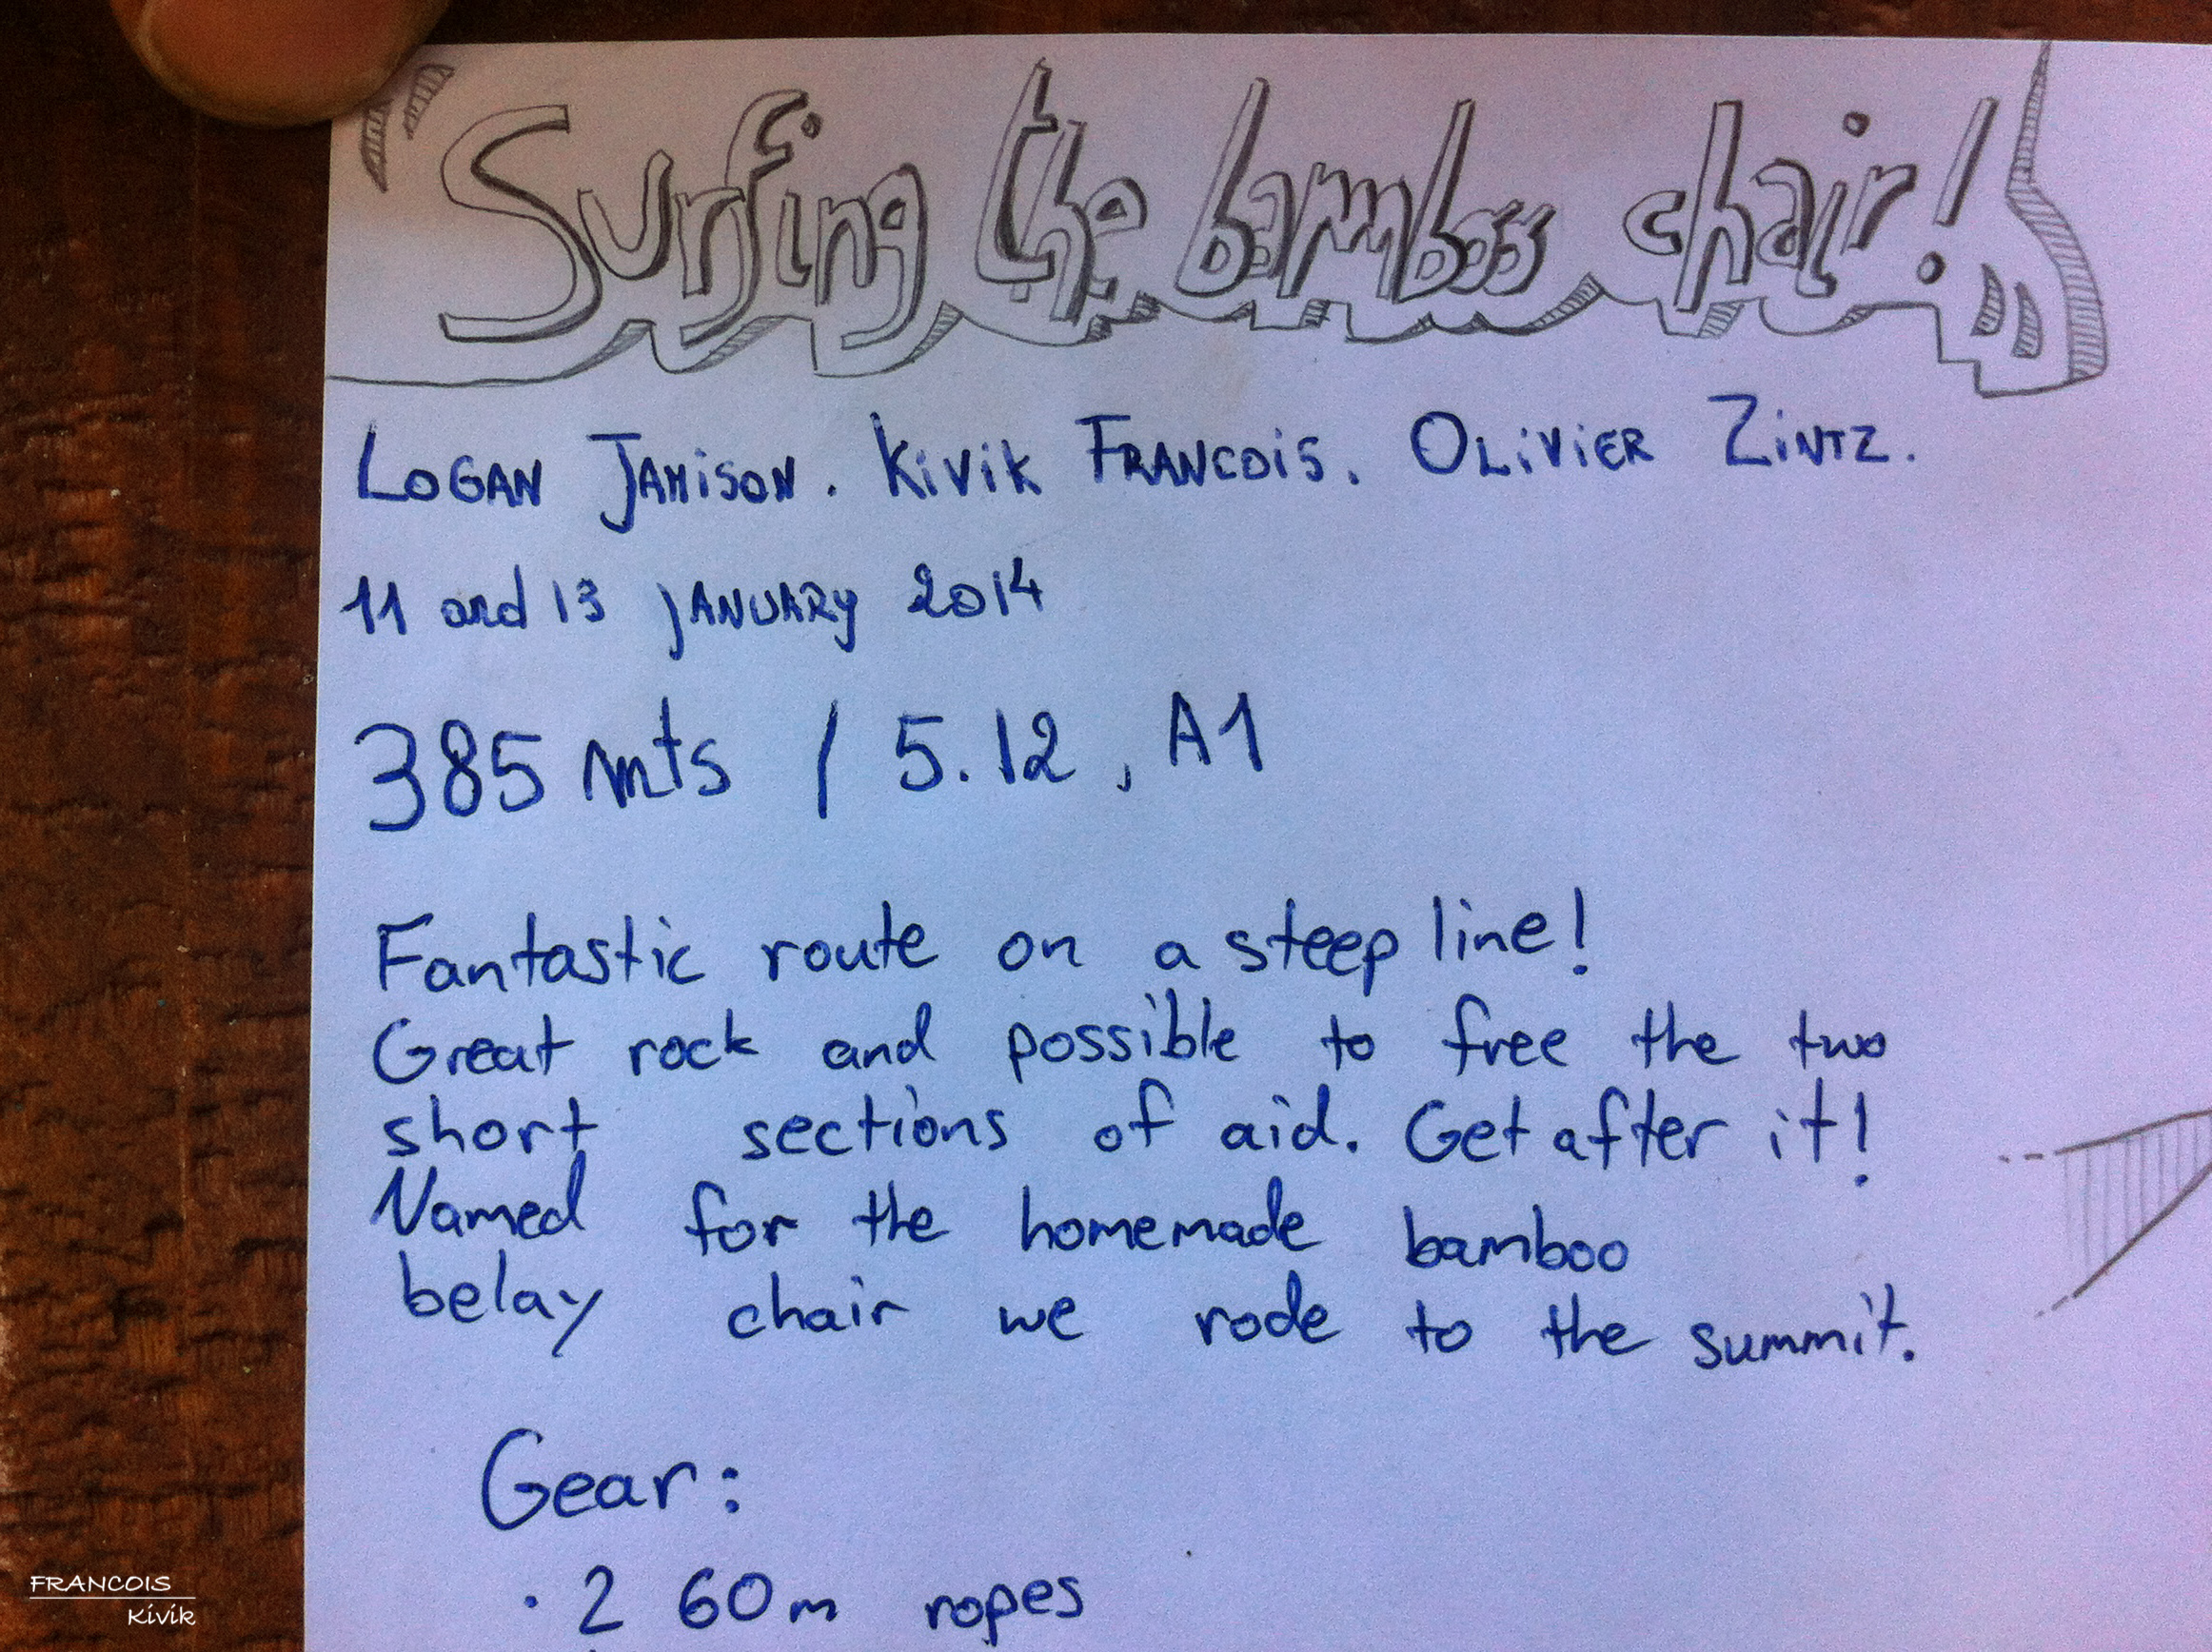 Surfing the bamboo chair!
LOGAN JAMISON. KIVIK FRANCOIS. OLIVIER ZINTZ.
11 and 13 JANUARY 2014
385 mts / 5.12, A1
Fantastic route on a steep line!
Great rock and possible to free the two
short sections of aid. Get after it!
Named for the homemade bamboo
belay chair we rode to the summit.
Gear:
· 2 60m ropes
FRANCOIS
Kivik